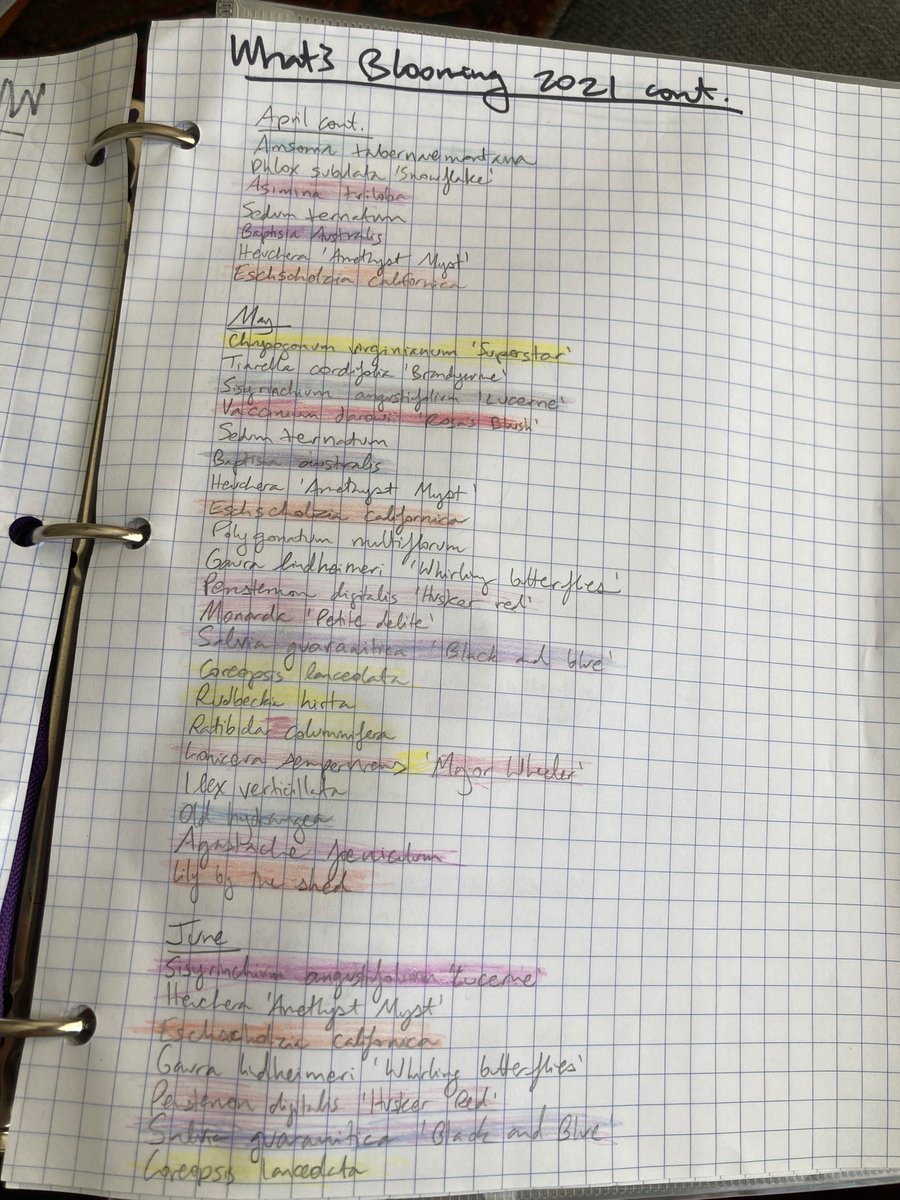 W
What's Blooming 2021 cont.
April cont.
Amsonia tabernaemontana
Phlox subulata 'Snowflake'
Asimina triloba
Sedum ternatum
Baptisia Australis
Heuchera 'Amethyst Myst'
Eschscholzia californica
May
Chrysogonum virginianum 'Superstar'
Tiarella cordifolia 'Brandywine'
Sisyrinchium angustifolium 'Lucerne'
Vaccinium darowii 'Rosa's Blush'
Sedum ternatum
Baptisia australis
Heuchera 'Amethyst Myst'
Eschscholzia californica
Polygonatum multiflorum
Gaura lindheimeri 'Whirling butterflies'
Penstemon digitalis 'Husker red'
Monarda 'Petite delite'
Salvia guaranitica 'Black and blue'
Coreopsis lanceolata
Rudbeckia hirta
Ratibida columnifera
Lonicera sempervirens 'Major Wheeler'
Ilex verticillata
Old hydrangea
Agastache foeniculum
Lily by the shed
June
Sisyrinchium angustifolium 'Lucerne'
Heuchera 'Amethyst Myst'
Eschscholzia californica
Gaura lindheimeri 'Whirling butterflies'
Penstemon digitalis 'Husker Red'
Salvia guaranitica 'Black and Blue'
Coreopsis lanceolata